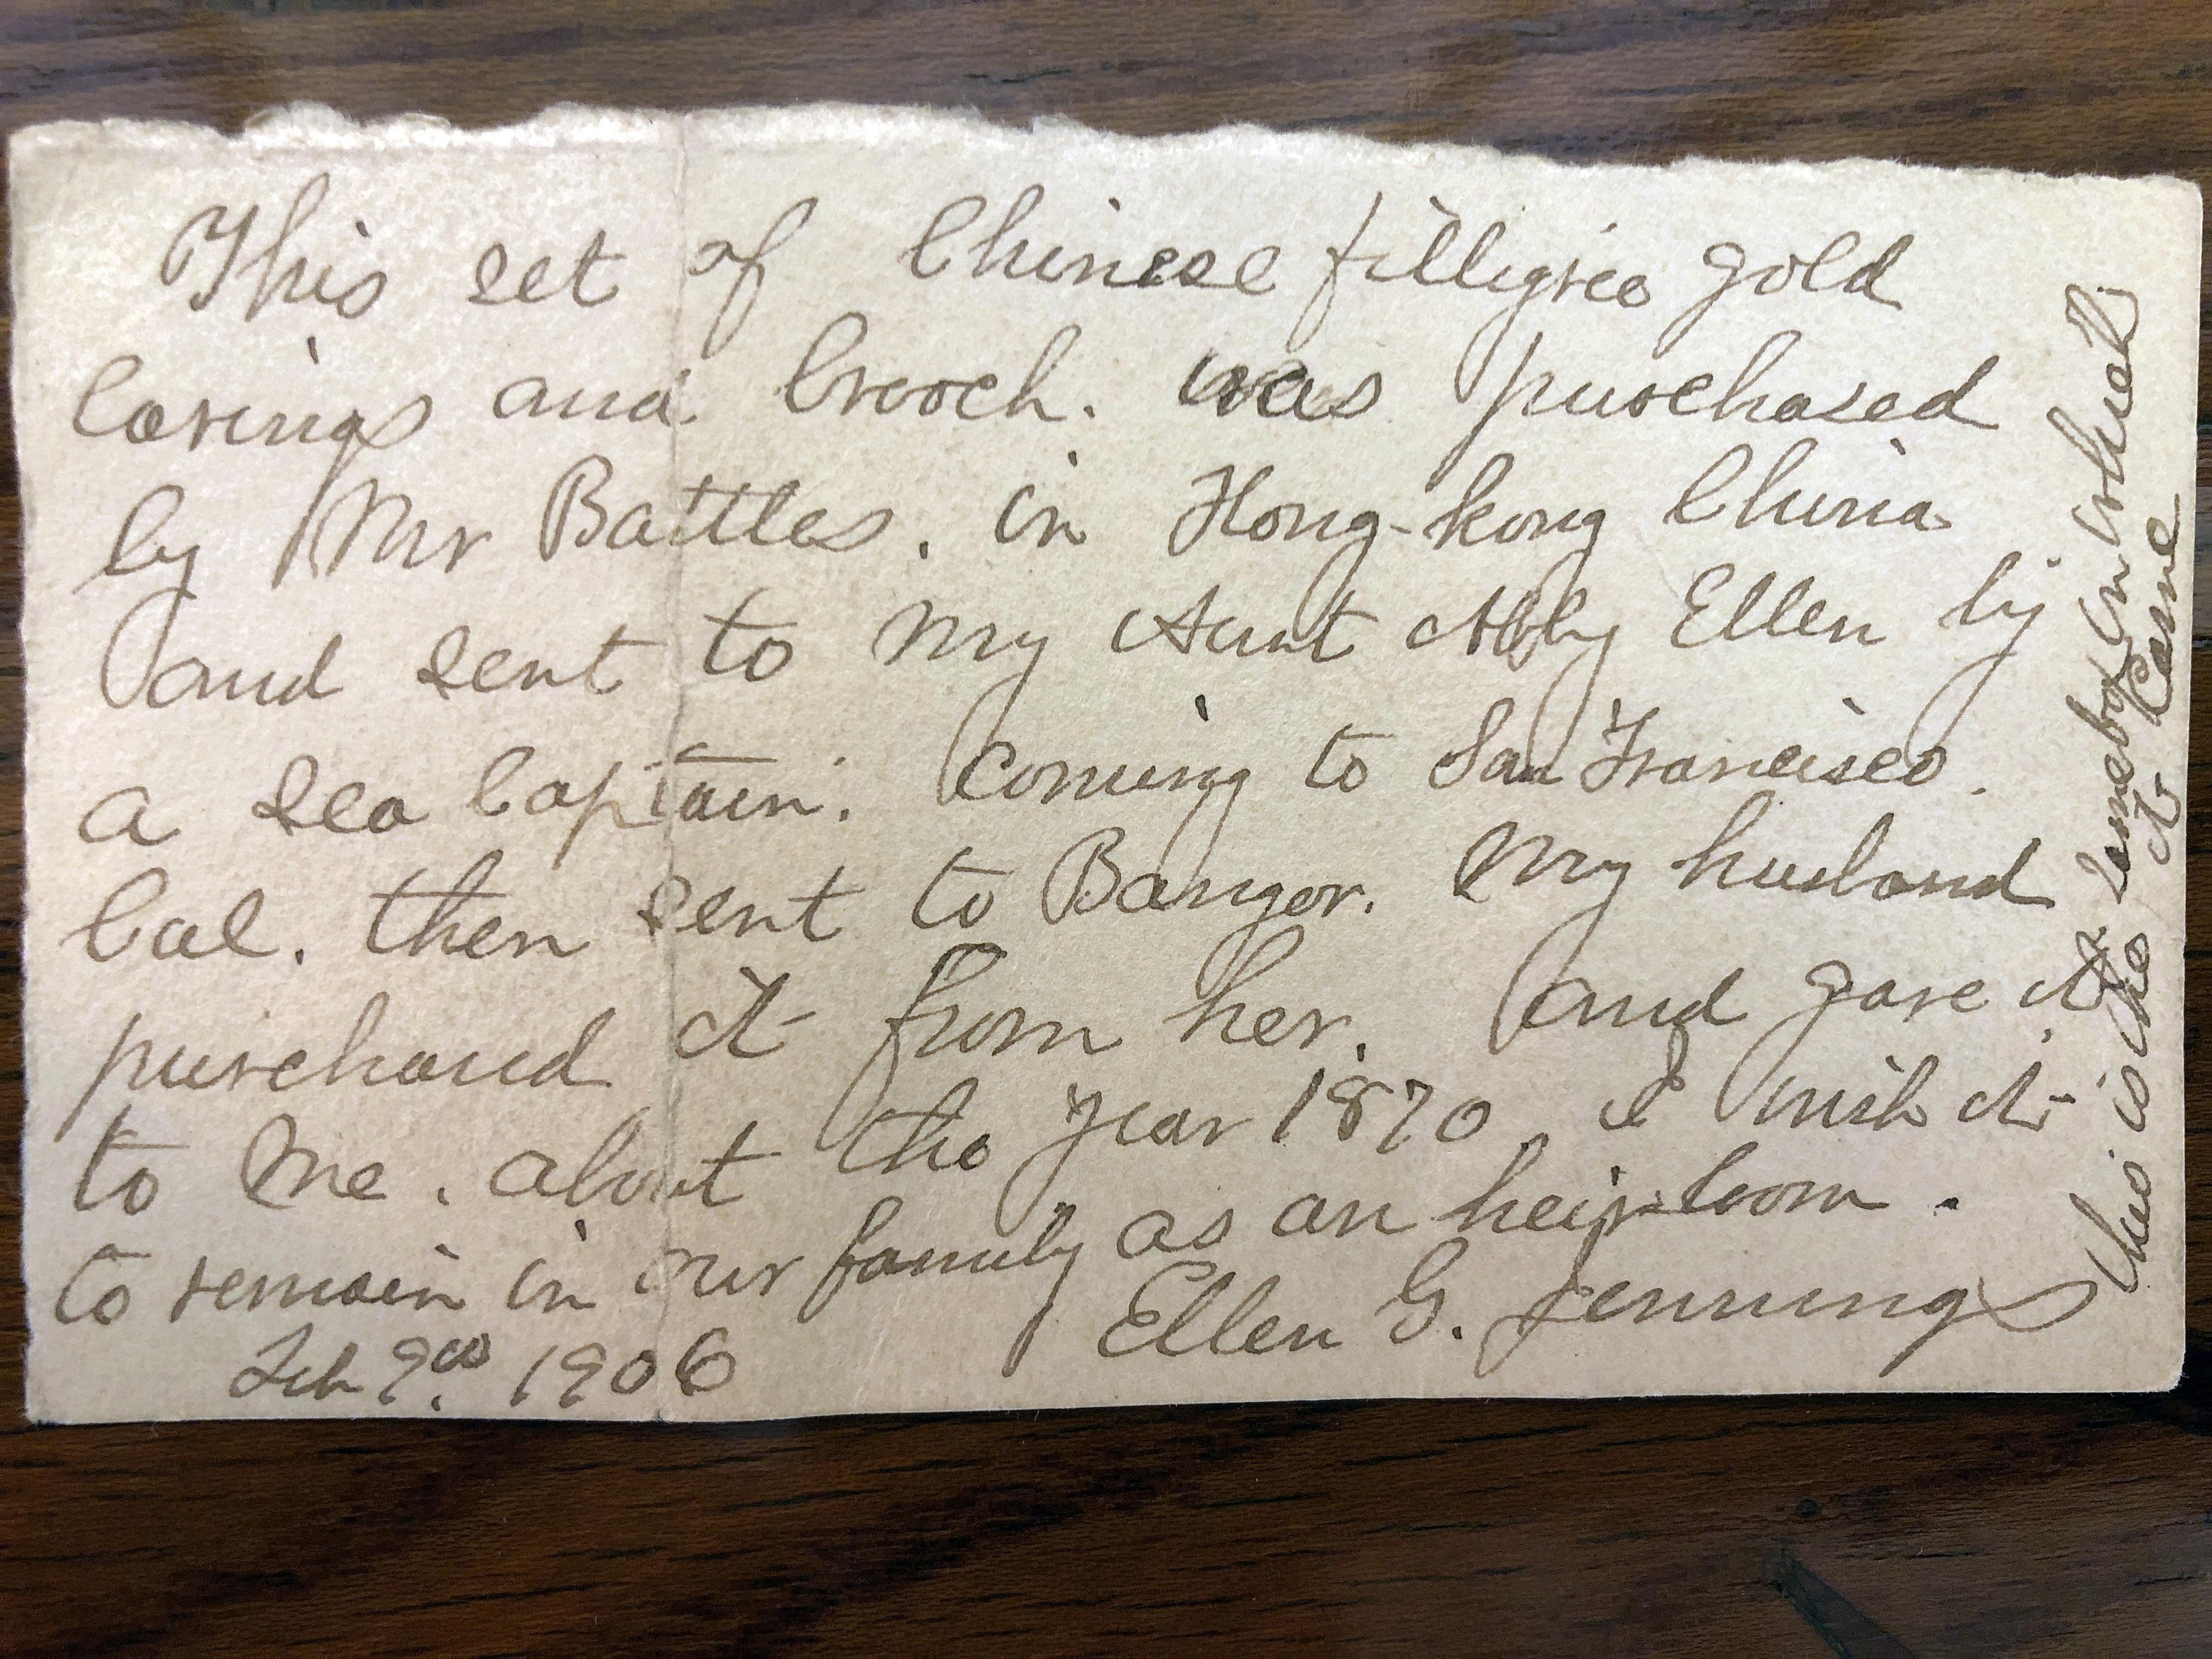 This set of Chinese filligree gold
Earings and brooch. was purchased
by Mr Battles. in Hong-kong China
and sent to my Aunt Abby Ellen by
a sea Captain. coming to San Francisco.
Cal. then sent to Bangor. My husband
purchasd it from her. and gave it
to me. about the year 1870. I wish it
to remain in our family as an heirloom.
Ellen G. Jennings
Feb 9 1906
this is the same box in which
it came